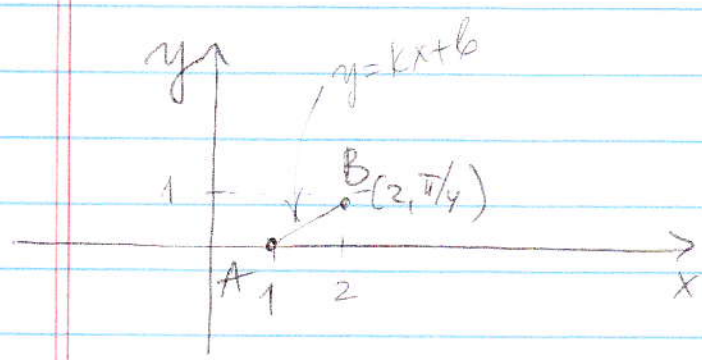 y
y=kx+b
1
B (2, π/4)
A 1 2 x